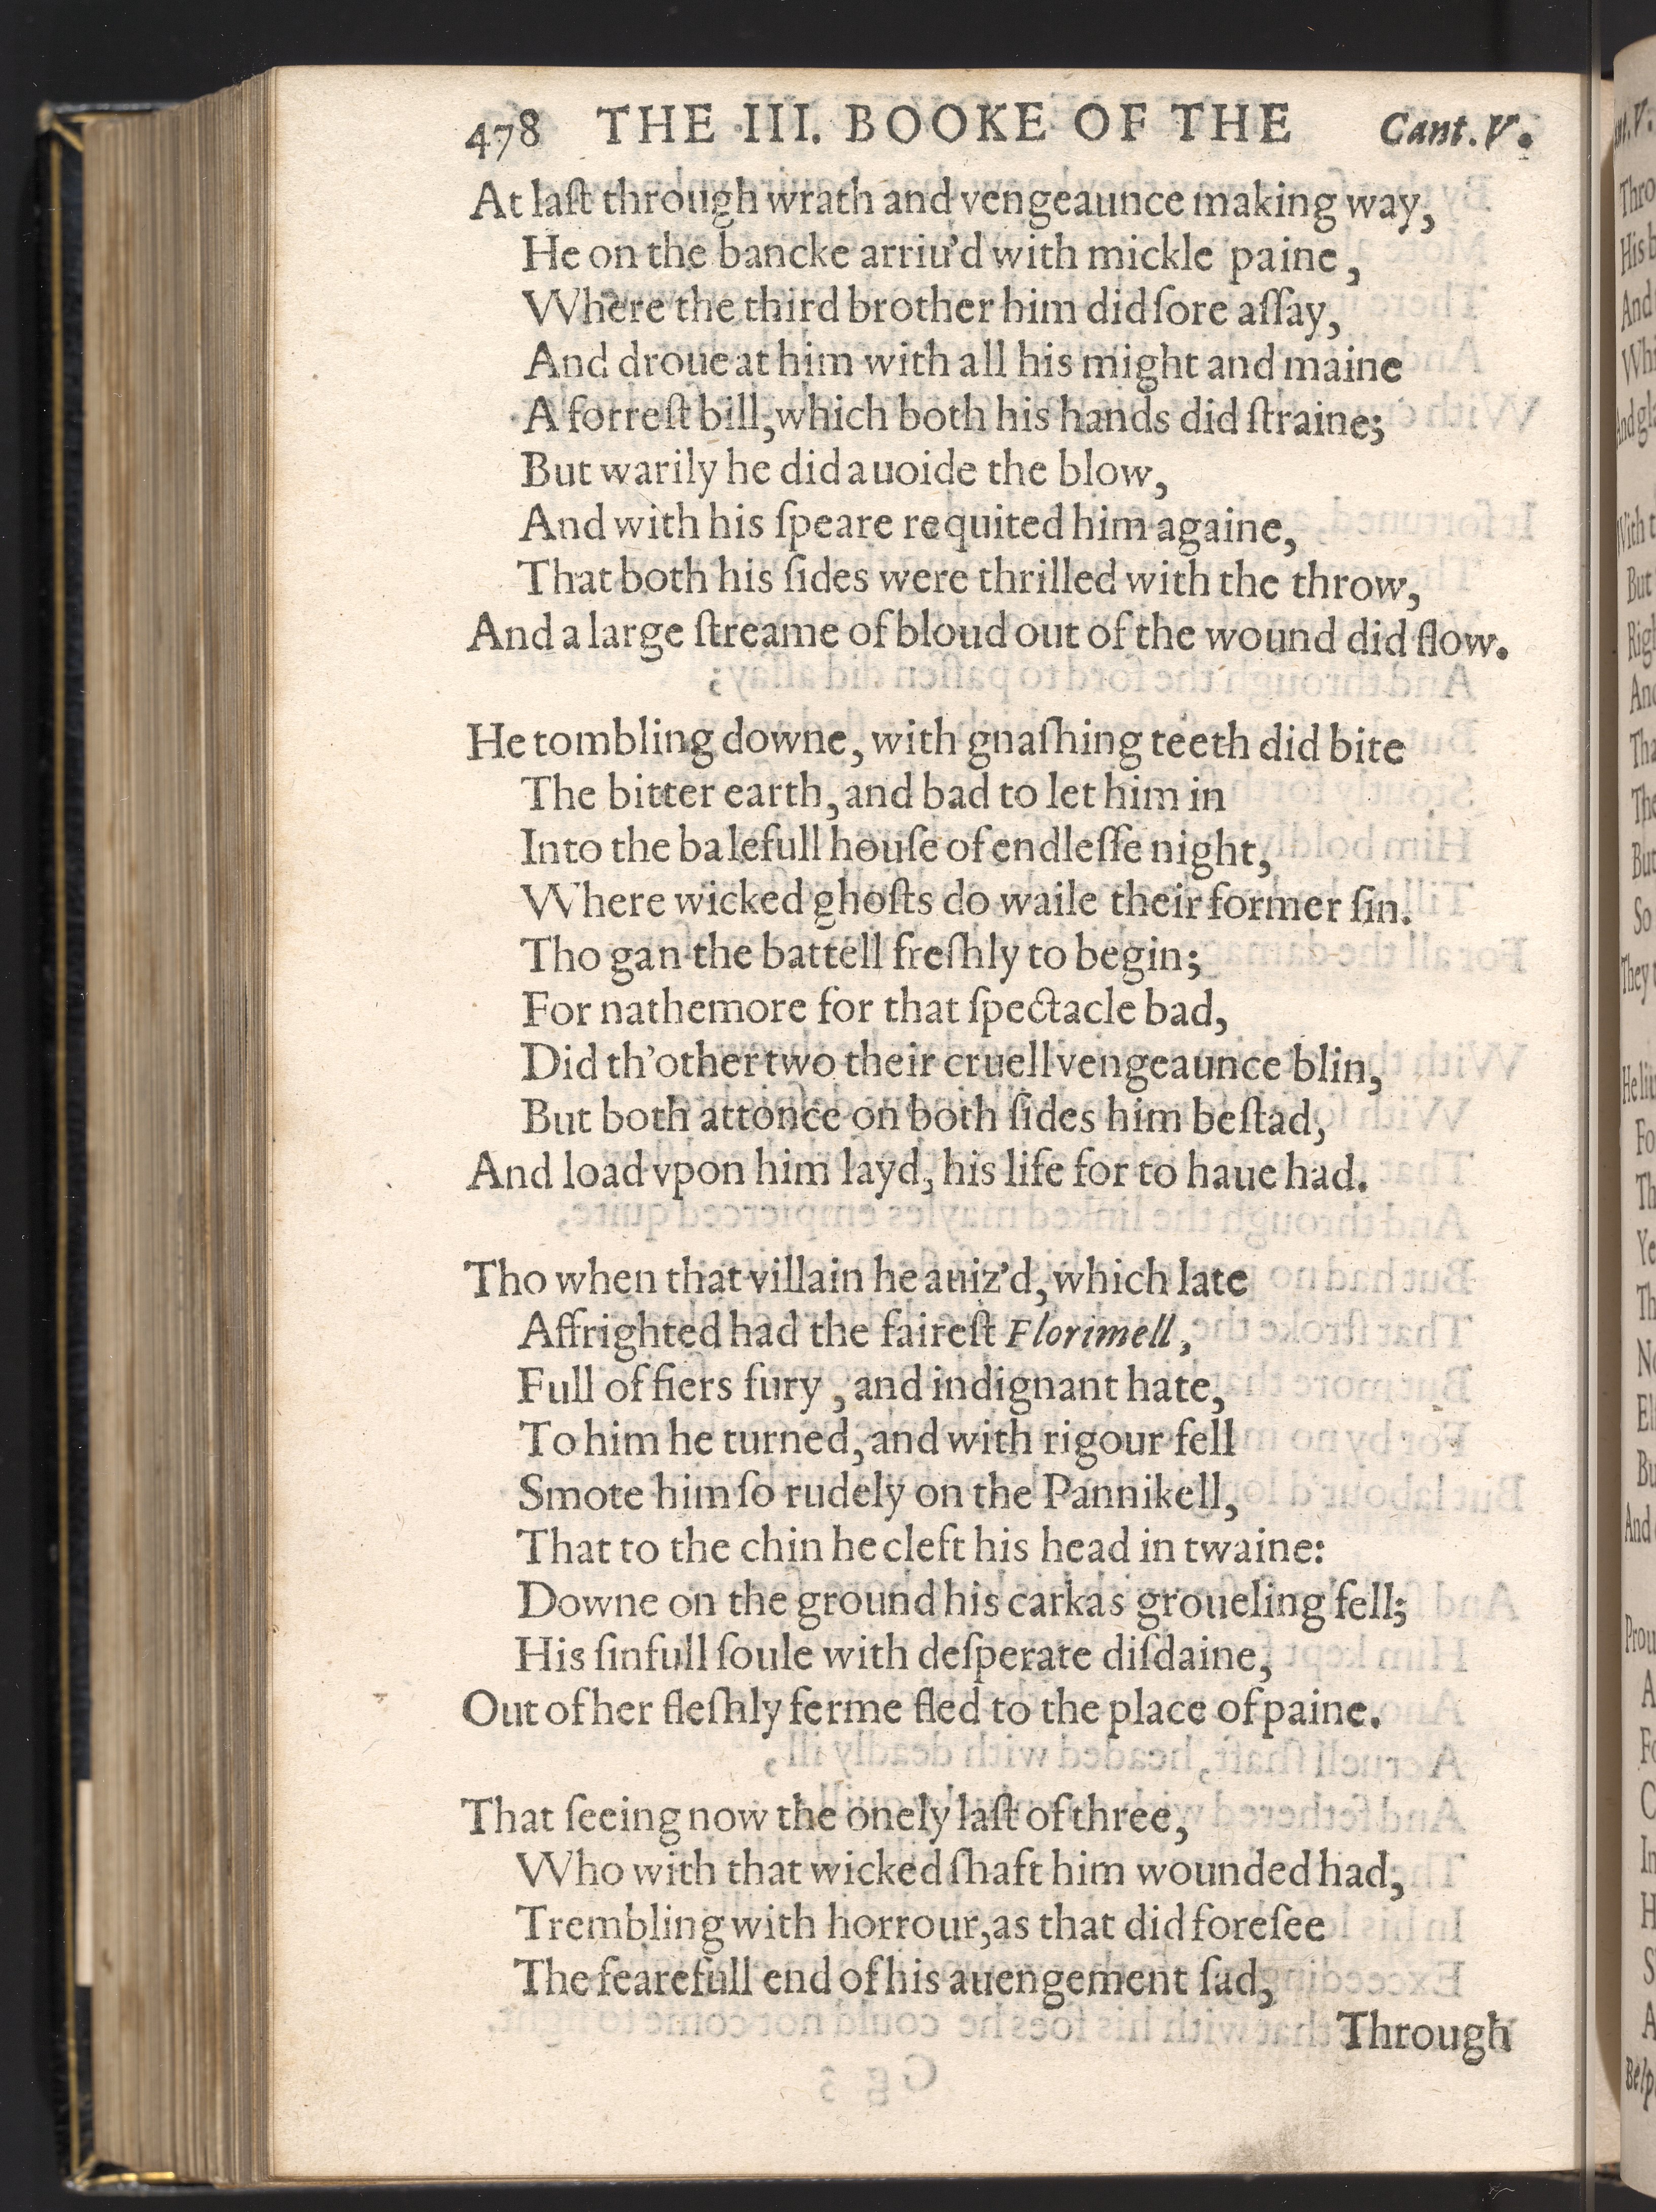 478 THE III. BOOKE OF THE Cant. V.
At laſt through wrath and vengeaunce making way,
He on the bancke arriu'd with mickle paine,
Where the third brother him did ſore aſſay,
And droue at him with all his might and maine
A forreſt bill, which both his hands did ſtraine;
But warily he did auoide the blow,
And with his ſpeare requited him againe,
That both his ſides were thrilled with the throw,
And a large ſtreame of bloud out of the wound did flow.
He tombling downe, with gnaſhing teeth did bite
The bitter earth, and bad to let him in
Into the balefull houſe of endleſſe night,
Where wicked ghoſts do waile their former ſin.
Tho gan the battell freſhly to begin;
For nathemore for that ſpectacle bad,
Did th'other two their cruell vengeaunce blin,
But both attonce on both ſides him beſtad,
And load vpon him layd, his life for to haue had.
Tho when that villain he auiz'd, which late
Affrighted had the faireſt Florimell,
Full of fiers fury, and indignant hate,
To him he turned, and with rigour fell
Smote him ſo rudely on the Pannikell,
That to the chin he cleft his head in twaine:
Downe on the ground his carkas groueling fell;
His ſinfull ſoule with deſperate diſdaine,
Out of her fleſhly ferme fled to the place of paine.
That ſeeing now the onely laſt of three,
Who with that wicked ſhaft him wounded had,
Trembling with horrour, as that did foreſee
The fearefull end of his auengement ſad,
Through